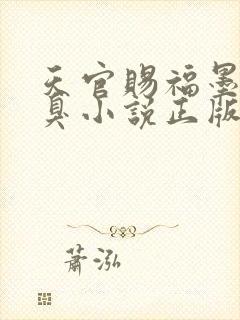 天官賜福墨
臭小說正版
蕭泓